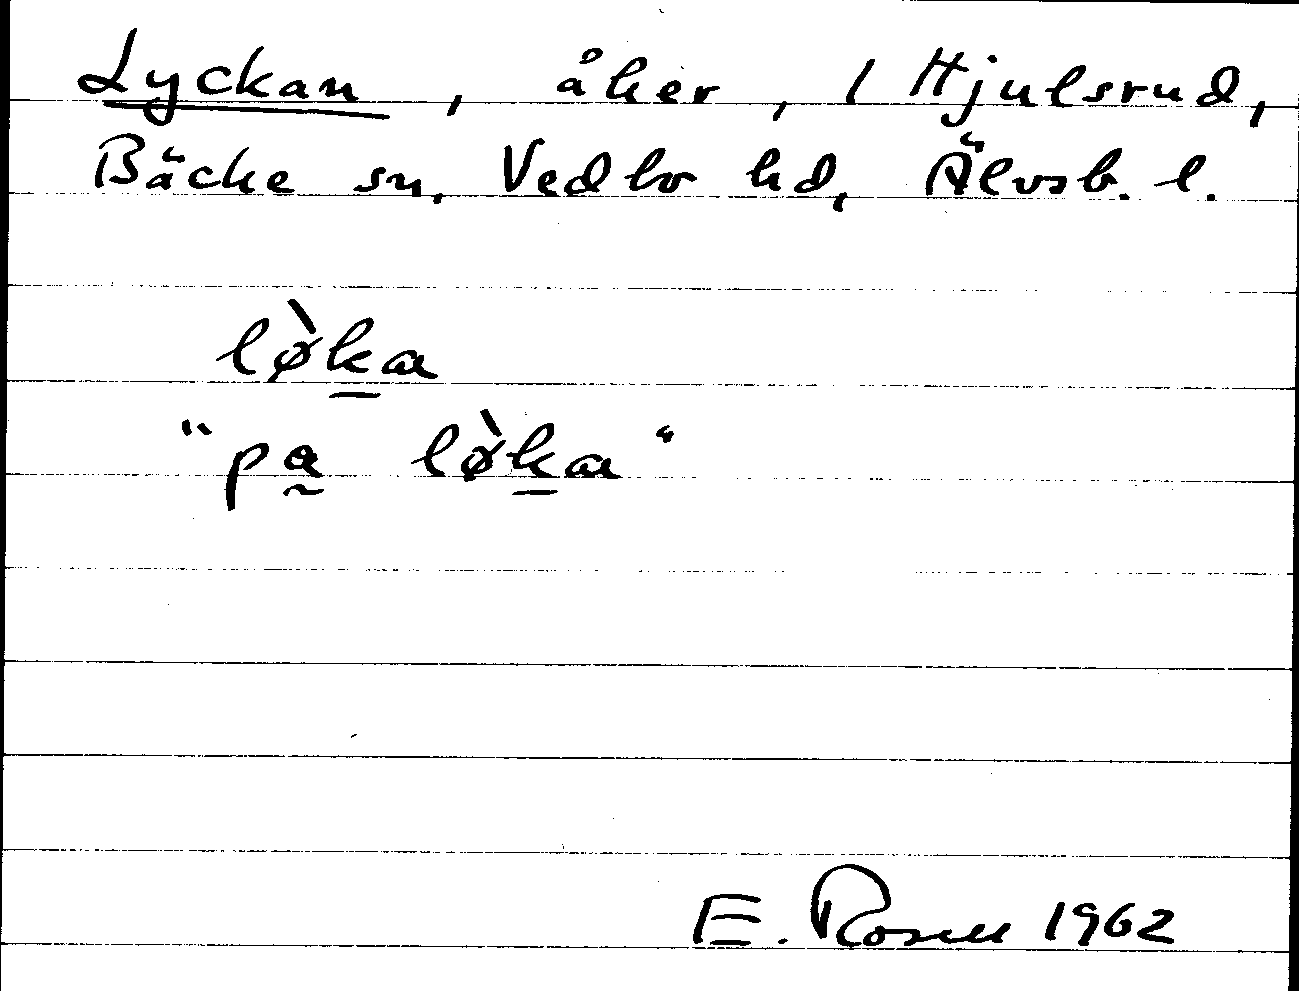 Lyckan, åker, 1 Hjulsrud,
Bäcke sn, Vedbo hd, Älvsb. l.
lø̀k̲a
"pa̰ lø̀k̲a"
E. Rosell 1962